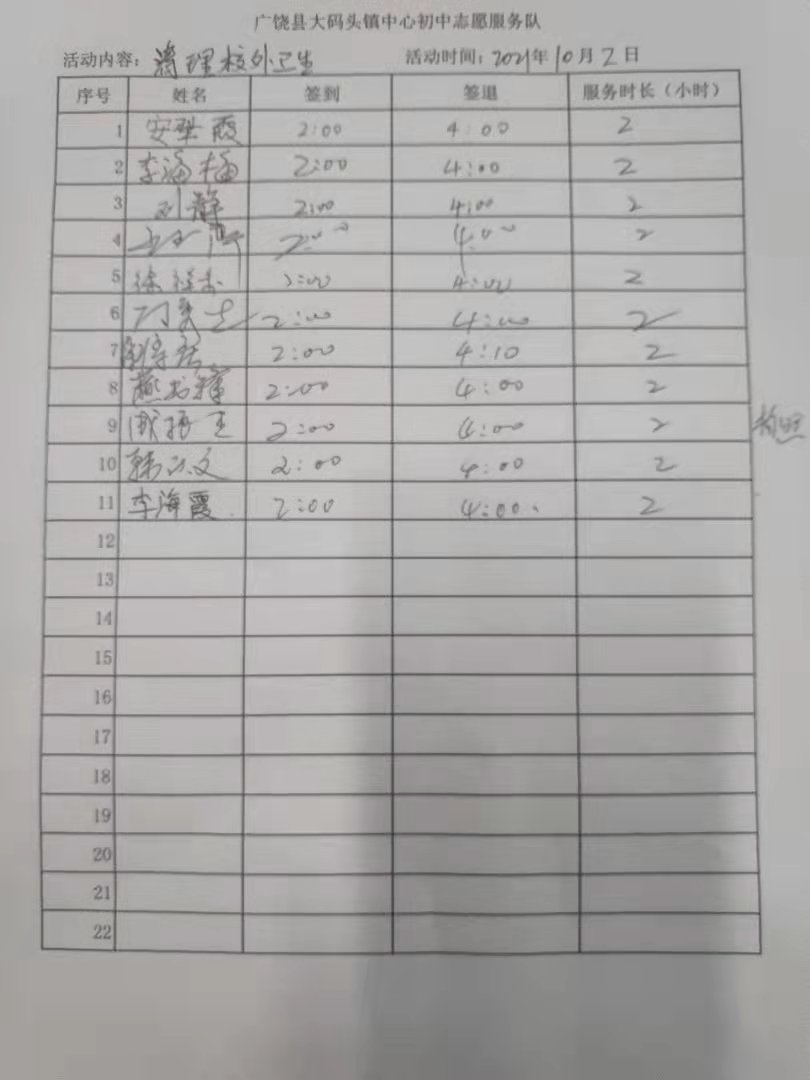 广饶县大码头镇中心初中志愿服务队
活动内容：清理校外卫生 活动时间：2021年10月2日
序号 姓名 签到 签退 服务时长（小时）
1 安翠霞 2:00 4:00 2
2 李海 2:00 4:00 2
3 刘静 2:00 4:00 2
4 2:00 4:00 2
5 徐 2:00 4:00 2
6 2:00 4:00 2
7 2:00 4:10 2
8 燕 2:00 4:00 2
9 振 2:00 4:00 2
10 韩 文 2:00 4:00 2
11 李海霞 2:00 4:00 2
12
13
14
15
16
17
18
19
20
21
22